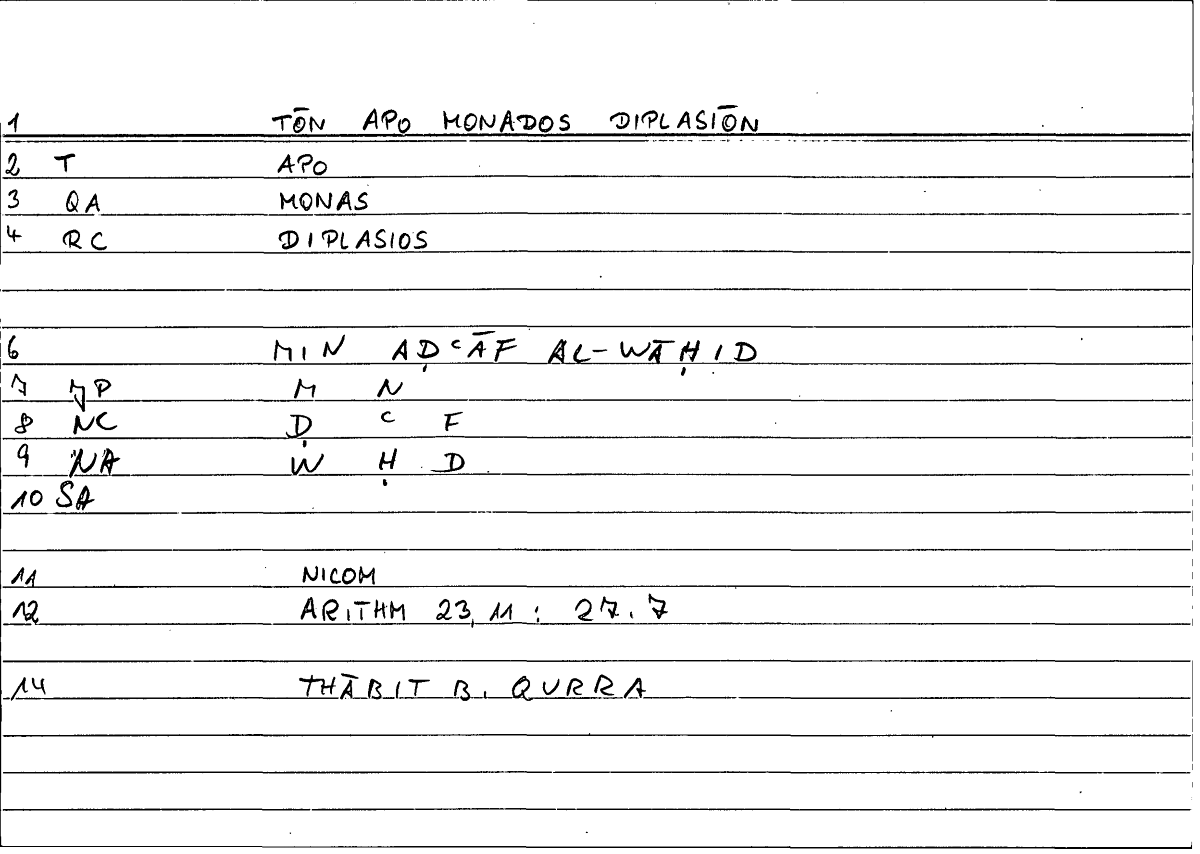 1 TŌN APO MONADOS DIPLASIŌN
2 T APO
3 QA MONAS
4 RC DIPLASIOS
6 MIN AḌcĀF AL-WĀḤID
7 JP M N
8 NC Ḍ c F
9 NA W Ḥ D
10 SA
11 NICOM
12 ARITHM 23,11 : 27.7
14 THĀBIT B. QURRA